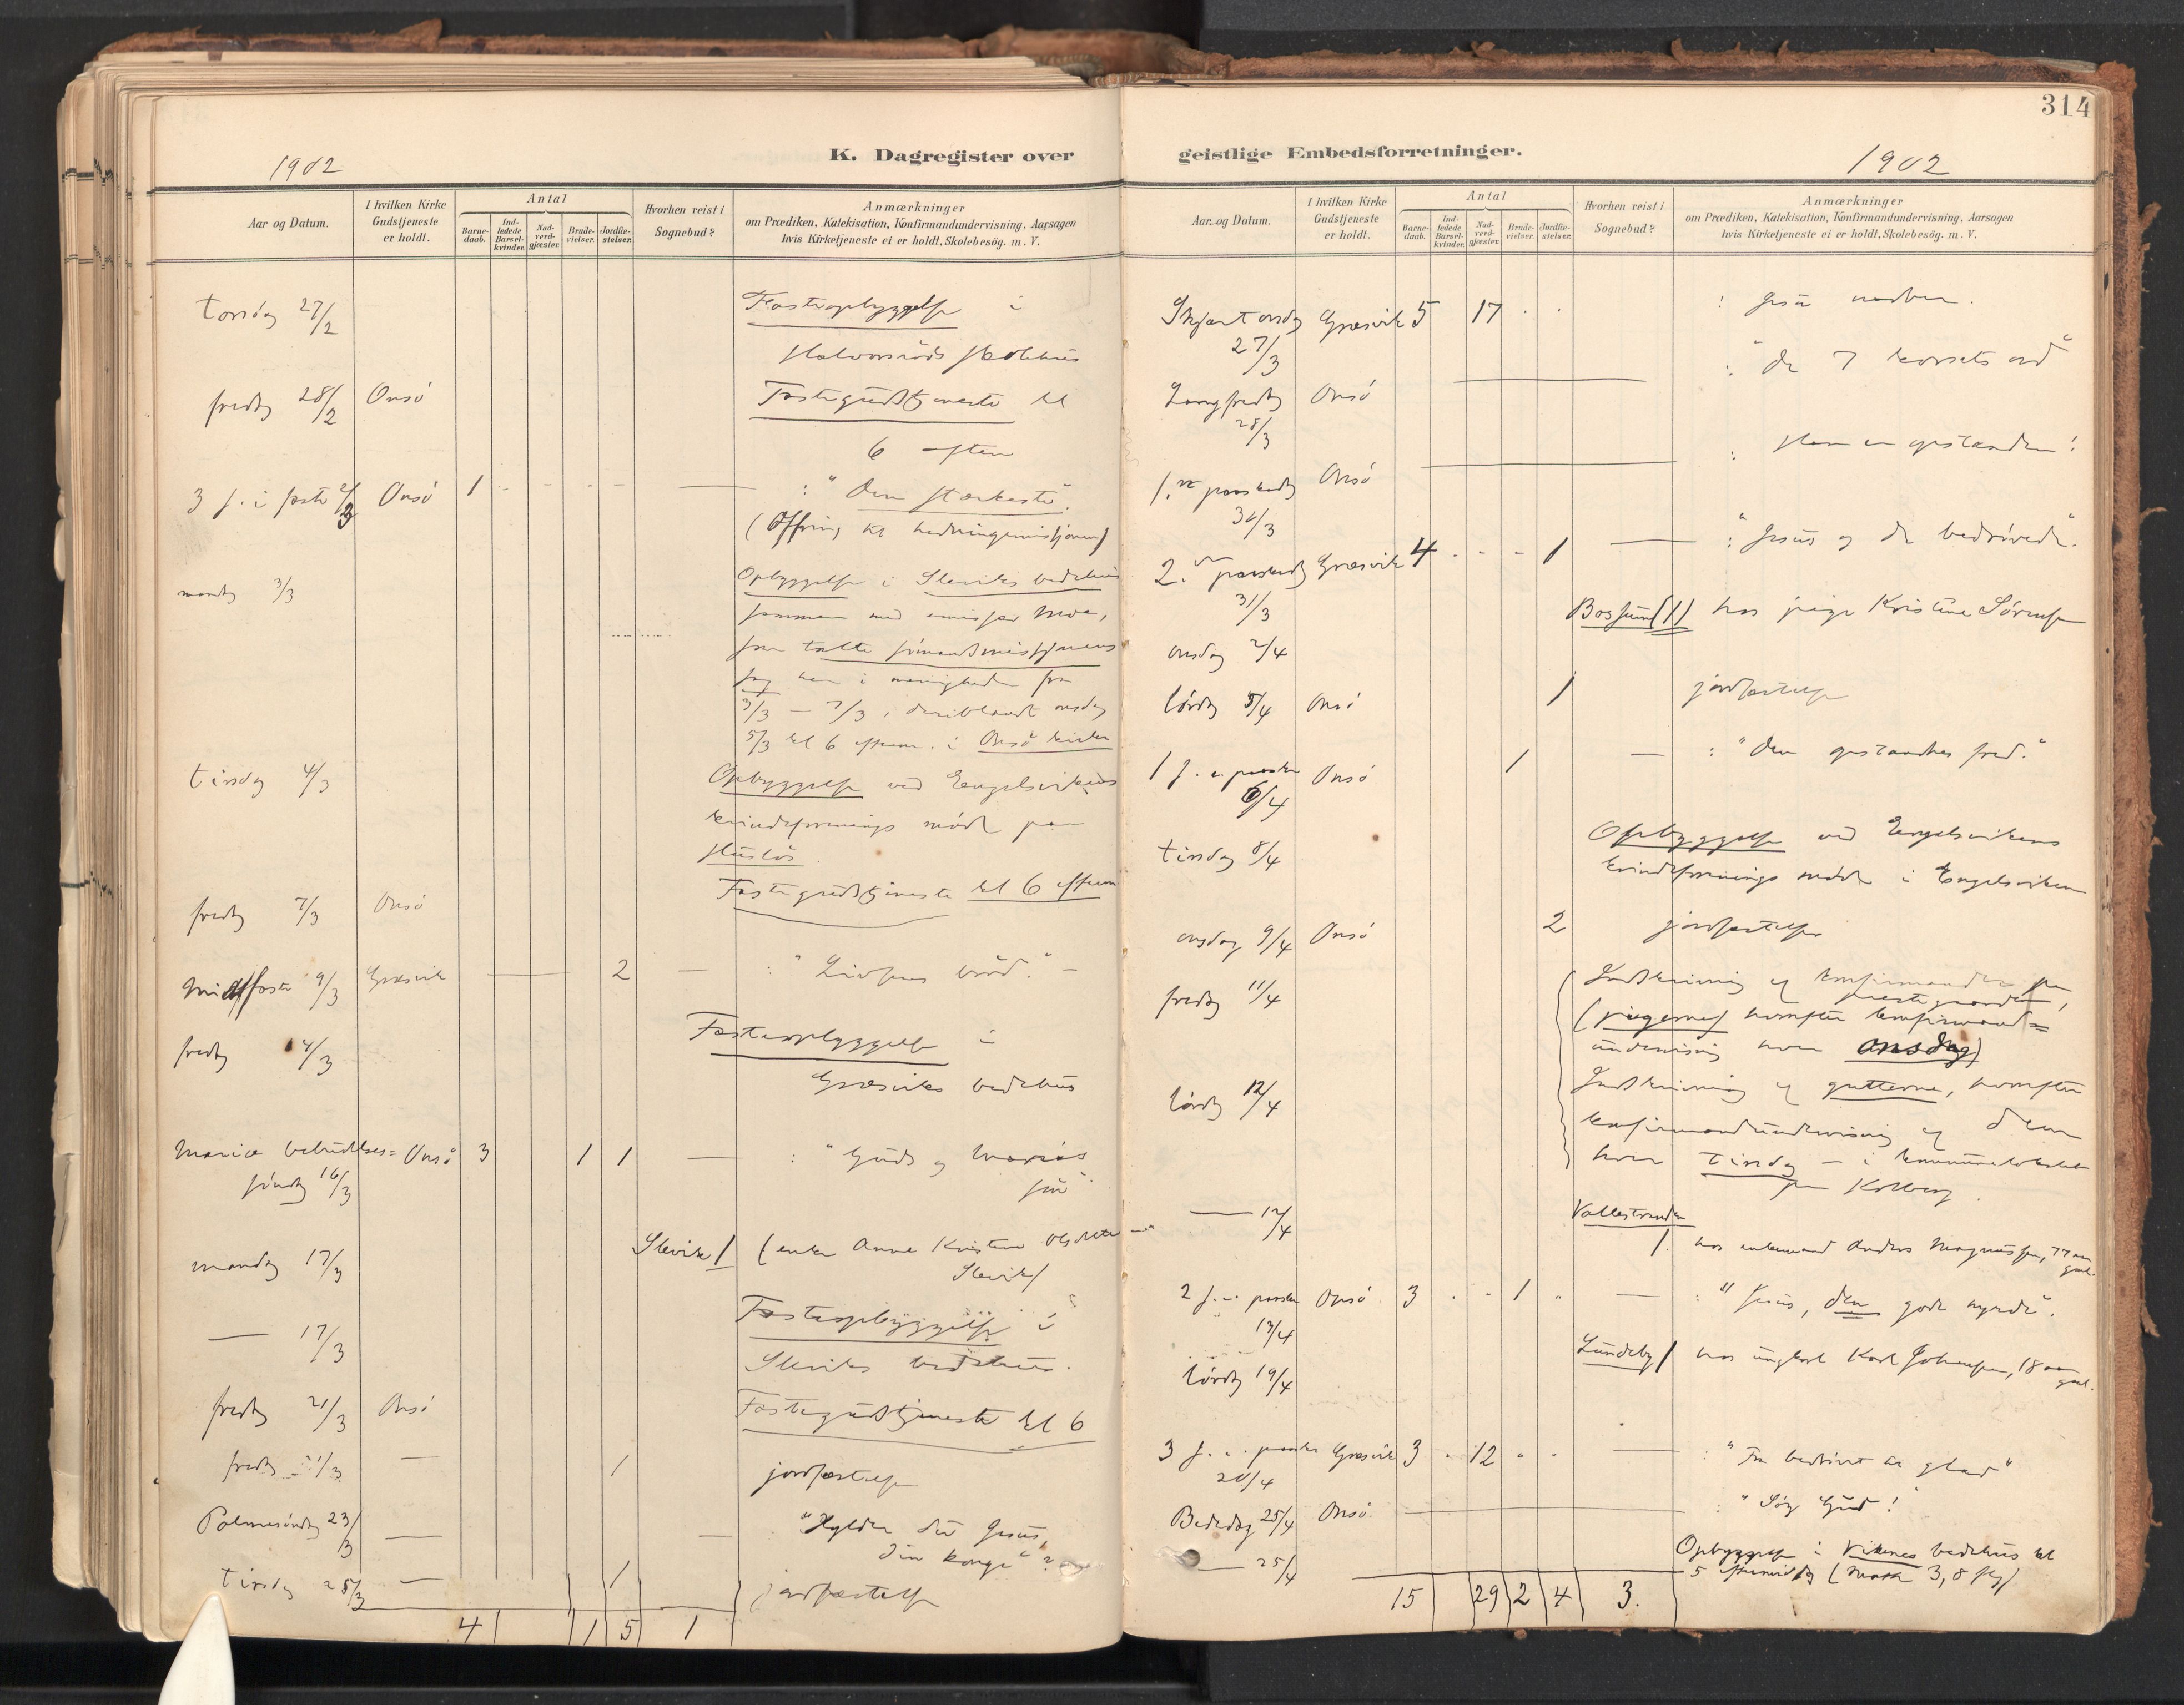 314
K. Dagregister over
geistlige Embedsforretninger.
1902
1902
Aar og Datum.
I hvilken Kirke
Gudstjeneste
er holdt.
Antal
Barne-
daab.
Ind-
ledede
Barsel-
kvinder.
Nad-
verd-
gjæster.
Brude-
vielser.
Jordfæ-
stelser.
Hvorhen reist i
Sognebud?
Anmærkninger
om Prædiken, Katekisation, Konfirmandundervisning, Aarsagen
hvis Kirketjeneste ei er holdt, Skolebesøg. m. V.
Torsdag 27/2 Fasteopbyggelse i
Halvorsröds skolehus
fredag 28/2 Onsö Fastegudstjeneste kl
6 aften
3 s. i faste 2/3 Onsö 1 - - - - — : "Den stærkeste".
(Offring til hedningemissjonen)
mandag 3/3 Opbyggelse i Sleviks bedehus
sammen med emissær Moe,
som talte sömandsmissjonens
sag her i menigheden fra
3/3 — 7/3, deriblandt onsdag
5/3 kl 6 efterm. i Onsö kirke
Tirsdag 4/3 Opbyggelse ved Engelsvikens
kvindeforenings möde paa
Huslös
fredag 7/3 Onsö Fastegudstjeneste kl 6 efterm
Midfaste 9/3 Græsvik — 2 — : "Livsens bröd." —
fredag 14/3 Fasteopbyggelse i
Græsviks bedehus
Mariæ bebudelses= Onsö 3 1 1 — : "Guds og Marias
söndag 16/3 sön"
mandag 17/3 Slevik 1 (enke Anne Kristine Olsdatter
Slevik)
— 17/3 Fasteopbyggelse i
Sleviks bedehus.
fredag 21/3 Onsö Fastegudstjeneste kl 6
fredag 21/3 — 1 jordfæstelse
Palmesöndag 23/3 — — "Hylder du Jesus,
din konge"?
Tirsdag 25/3 — 1 jordfæstelse
4 1 5 1
Aar og Datum.
I hvilken Kirke
Gudstjeneste
er holdt.
Antal
Barne-
daab.
Ind-
ledede
Barsel-
kvinder.
Nad-
verd-
gjæster.
Brude-
vielser.
Jordfæ-
stelser.
Hvorhen reist i
Sognebud?
Anmærkninger
om Prædiken, Katekisation, Konfirmandundervisning, Aarsagen
hvis Kirketjeneste ei er holdt, Skolebesøg. m. V.
Skjærtorsdag Græsvik 5 17 . . : Jesu
27/3
Langfredag Onsö — : "De 7 korsets ord"
28/3
1.ste paaskedag Onsö — : Han er opstanden!
30/3
2. paaskedag Græsvik 4 . - - 1 — : "Jesus og de bedrövede".
31/3
onsdag 2/4 (1) hos pige Kristine Sörensen
lördag 5/4 Onsö 1 jordfæstelse
1 s. e. paaske Onsö 1 — : "Den opstandnes fred."
6/4
Tirsdag 8/4 Opbyggelse ved Engelsvikens
kvindeforenings möde i Engelsviken
onsdag 9/4 Onsö 2 jordfæstelse
fredag 11/4 Indskrivning af konfirmander paa
prestegaarden,
(pigerne) hvorefter konfirmand=
undervisning hver onsdag)
lördag 12/4 Indskrivning af gutterne, hvorefter
konfirmandundervisning af dem
hver Tirsdag — i kommunelokalet
paa Kolberg.
— 12/4 Vallestranden
1. hos enkemand Anders Magnussen, 77 aar
gml.
2 s. e. paaske Onsö 3 . . 1 " — : "Jesus, den gode hyrde".
13/4
lördag 19/4 Lundeby 1 hos ungkarl Karl Johansen, 18 aar
gml.
3 s. e. paaske Græsvik 3 . 12 " . — : "Fra bedrövet til glad"
20/4
Bededag 25/4 Onsö — : "Sög Gud!"
— 25/4 Opbyggelse i Vikenes bedehus kl
5 eftermiddag (Math 3, 8 flg)
15 29 2 4 3.